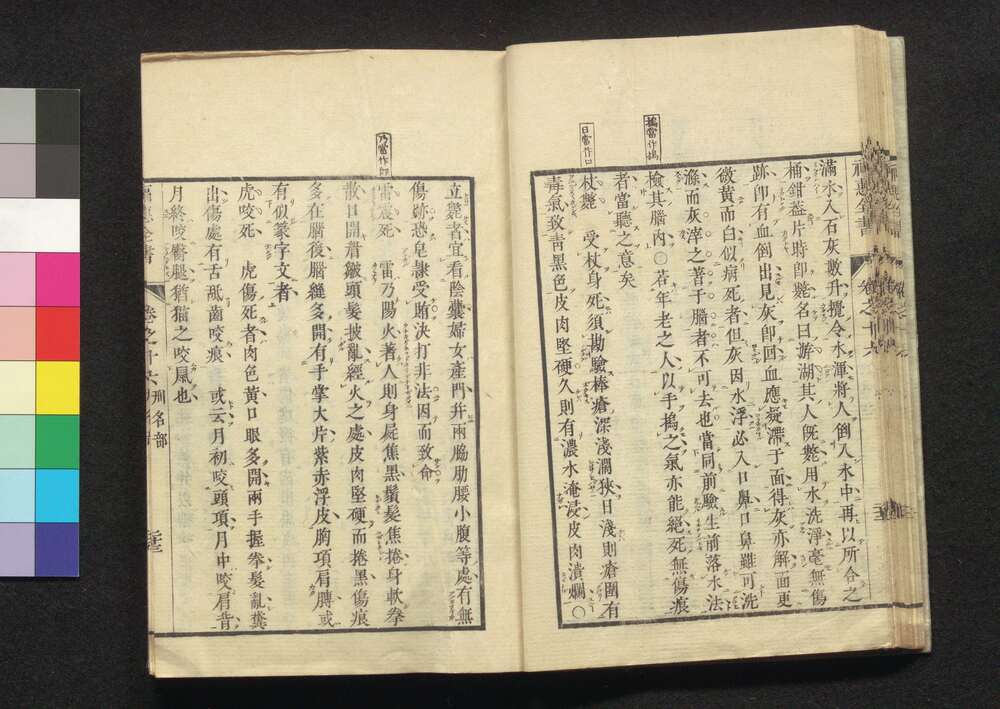 搗當作搗
日當作口
滿水入石灰數升攪令水渾將人倒入水中再以所合之
桶鉗盖片時即斃名曰游湖其人旣斃用水洗淨毫無傷
跡即有血倒出見灰即回血應凝滯于面得灰亦解面更
微黄而白似病死者但灰因水浮必入口鼻口鼻難可洗
滌而灰滓之著于腦者不可去也當同前驗生前落水法
檢其腦内○若年老之人以手搗之氣亦能絕死無傷痕
者當聽之意矣
杖斃 受杖身死須勘驗棒瘡深淺濶狹日淺則瘡圍有
毒氣致青黑色皮肉堅硬久則有濃水淹浸皮肉潰爛○
乃當作即
立斃者宜看陰囊婦女產門并兩脇肋腰小腹等處有無
傷跡恐皂隸受賄決打非法因而致命
雷震死 雷乃陽火著人則身屍焦黑鬚髮焦捲身軟拳
散口開㿜皺頭髮披亂經火之處皮肉堅硬而捲黑傷痕
多在腦後腦縫多開有手掌大片紫赤浮皮胸項肩膊或
有似篆字文者
虎咬死 虎傷死者肉色黄口眼多開兩手握拳髮亂糞
出傷處有舌舐齒咬痕 或云月初咬頭項月中咬肩背
月終咬臀腿猶猫之咬鼠也
福惠全書 卷之十六 刑名部